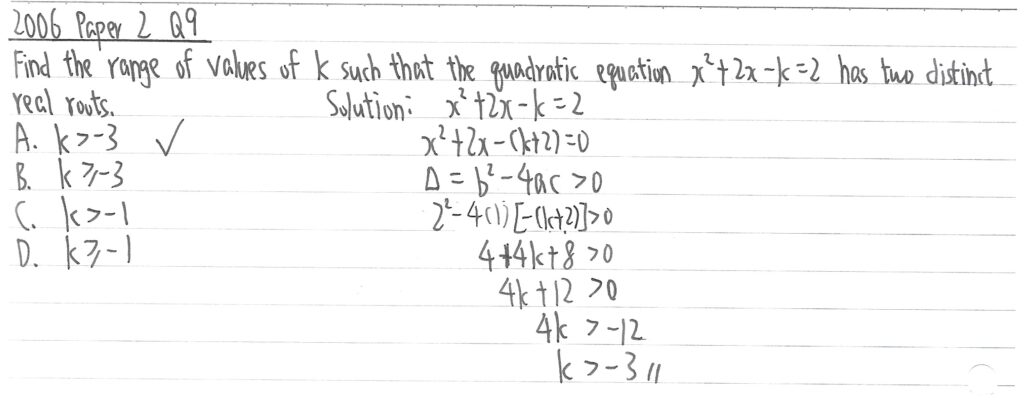 2006 Paper 2 Q9
Find the range of values of k such that the quadratic equation x²+2x-k=2 has two distinct
real roots.
Solution: x²+2x-k=2
A. k>-3 ✓
x²+2x-(k+2)=0
B. k⩾-3
Δ=b²-4ac>0
C. k>-1
2²-4(1)[-(k+2)]>0
D. k⩾-1
4+4k+8>0
4k+12>0
4k>-12
k>-3//